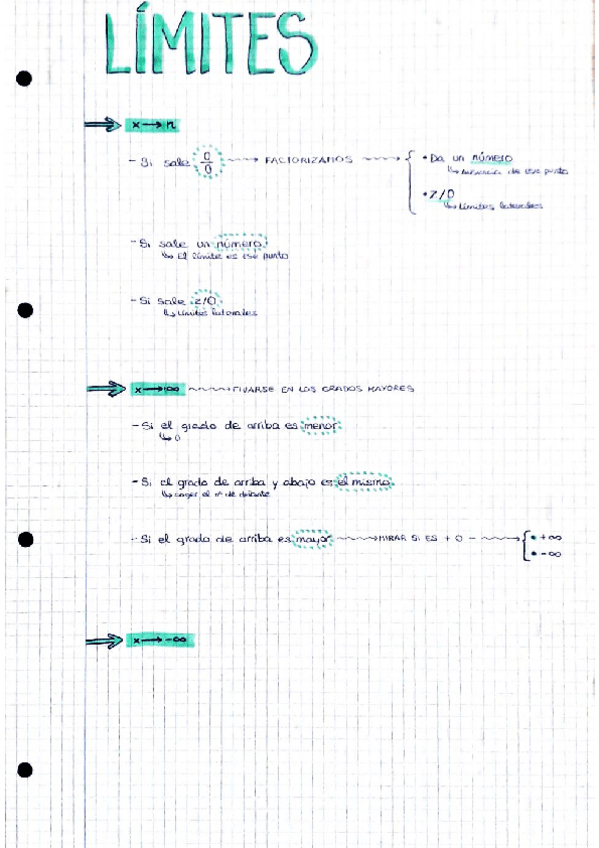 LÍMITES
x → n
- Si sale 0/0 → FACTORIZAMOS → { • Da un número
↳ Ausencia de ese punto
• z/0
↳ Límites laterales
- Si sale un número
↳ El límite es ese punto
- Si sale z/0
↳ Límites laterales
x → +∞ → FIJARSE EN LOS GRADOS MAYORES
- Si el grado de arriba es menor
↳ 0
- Si el grado de arriba y abajo es el mismo
↳ coger el nº de delante
- Si el grado de arriba es mayor → MIRAR SI ES + O - → { • +∞
• -∞
x → -∞